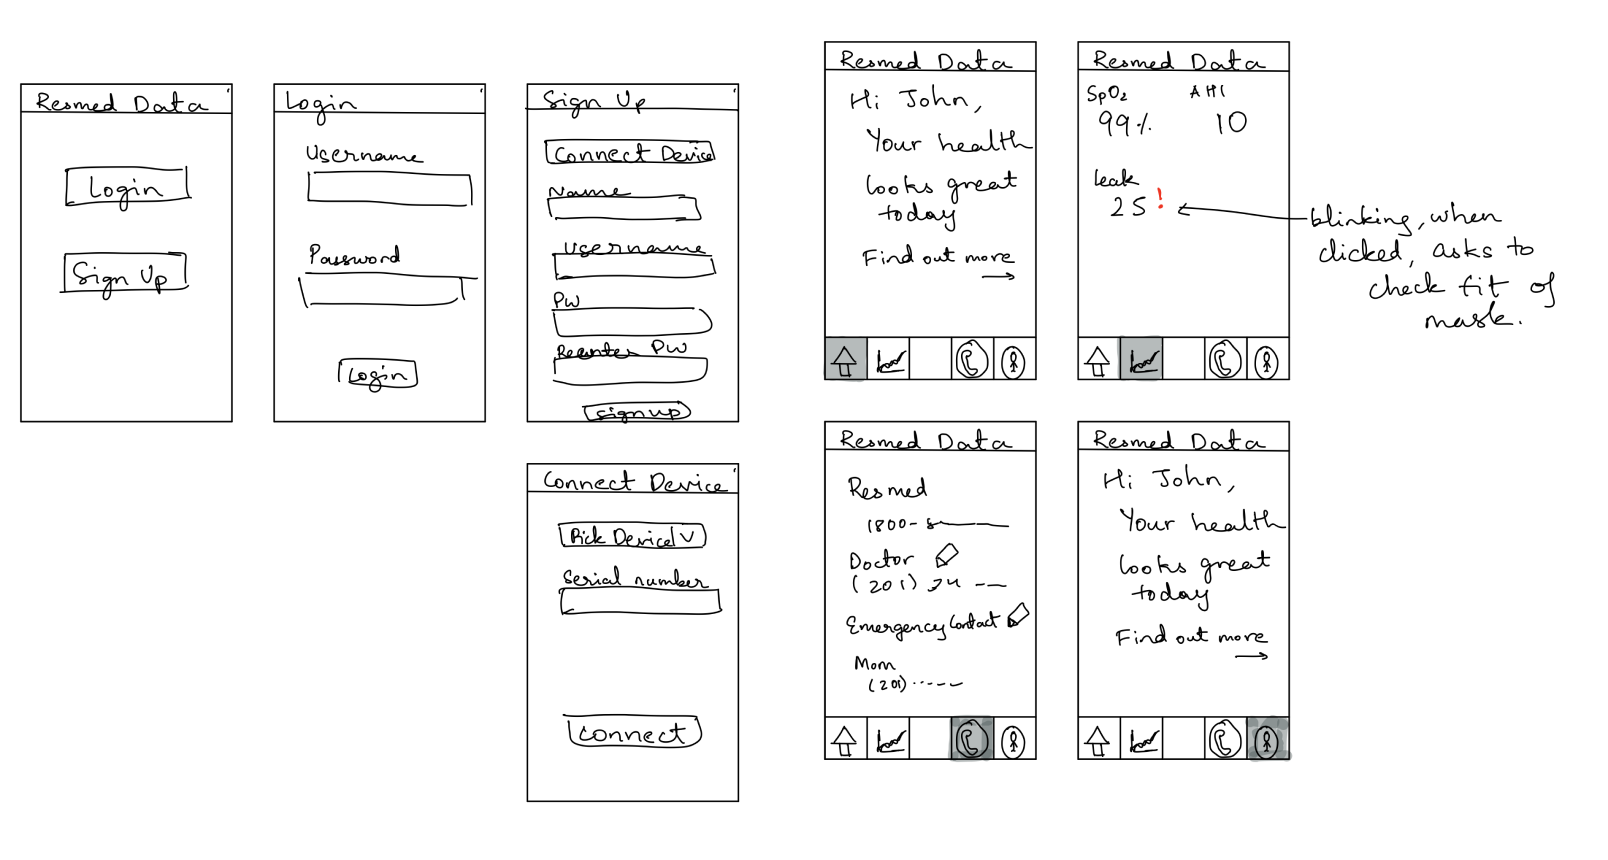 Resmed Data
Login
Sign Up
Login
Username
Password
Login
Sign Up
Connect Device
Name
Username
PW
Reenter PW
signup
Connect Device
Pick Device V
Serial number
Connect
Resmed Data
Hi John,
Your health
looks great
today
Find out more
Resmed Data
SpO₂ AHI
99% 10
leak
25!
blinking, when
clicked, asks to
check fit of
mask.
Resmed Data
Resmed
1800-
Doctor
(201)
Emergency Contact
Mom
(201)
Resmed Data
Hi John,
Your health
looks great
today
Find out more